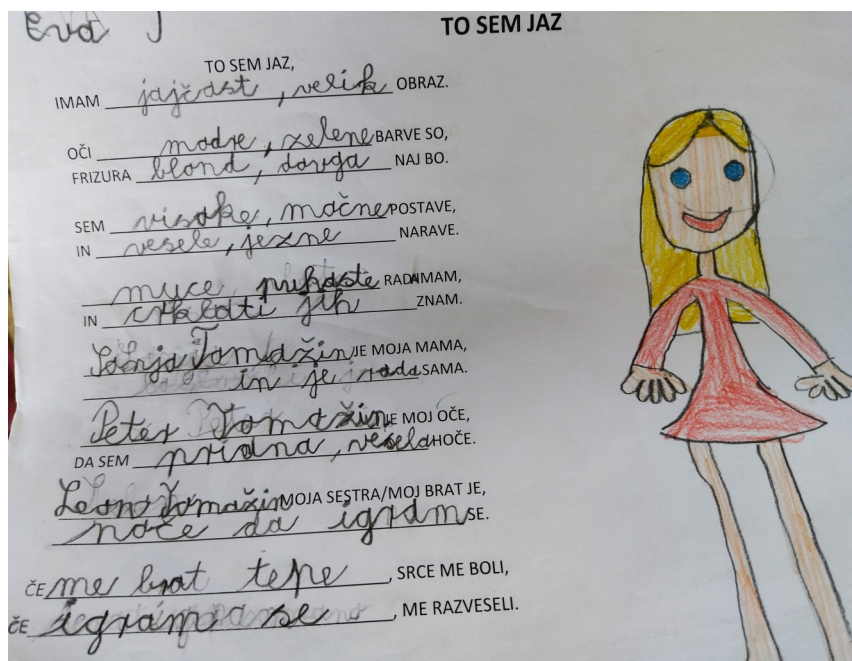 Eva J
TO SEM JAZ
TO SEM JAZ,
IMAM jajčast, velik OBRAZ.
OČI modre, zelene BARVE SO,
FRIZURA blond, dovga NAJ BO.
SEM visoke, močne POSTAVE,
IN vesele, jezne NARAVE.
muce puhaste RADA IMAM,
IN crklati jih ZNAM.
Sanja Tomažin JE MOJA MAMA,
in je rada SAMA.
Peter Tomažin JE MOJ OČE,
DA SEM pridna, vesela HOČE.
Leano Tomažin MOJA SESTRA/MOJ BRAT JE,
noče da igram SE.
ČE me brat tepe, SRCE ME BOLI,
ČE igram se, ME RAZVESELI.